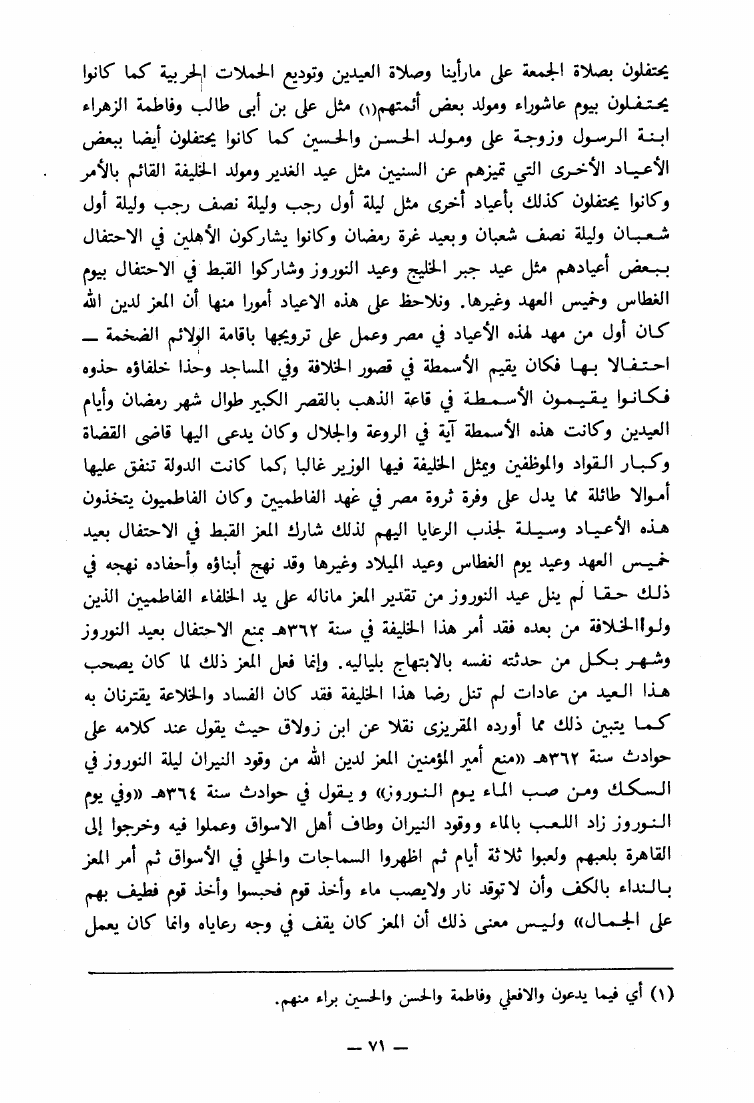 يحتفلون بصلاة الجمعة على مارأينا وصلاة العيدين وتوديع الحملات الحربية كما كانوا
يحتفلون بيوم عاشوراء ومولد بعض أئمتهم(١) مثل على بن أبى طالب وفاطمة الزهراء
ابنة الرسول وزوجة على ومولد الحسن والحسين كما كانوا يحتفلون أيضا ببعض
الأعياد الأخرى التي تميزهم عن السنيين مثل عيد الغدير ومولد الخليفة القائم بالأمر
وكانوا يحتفلون كذلك بأعياد أخرى مثل ليلة أول رجب وليلة نصف رجب وليلة أول
شعبان وليلة نصف شعبان وبعيد غرة رمضان وكانوا يشاركون الأهلين في الاحتفال
ببعض أعيادهم مثل عيد جبر الخليج وعيد النوروز وشاركوا القبط في الاحتفال بيوم
الغطاس وخميس العهد وغيرها. ونلاحظ على هذه الاعياد أمورا منها أن المعز لدين الله
كان أول من مهد لهذه الأعياد في مصر وعمل على ترويجها باقامة الولائم الضخمة —
احتفالا بها فكان يقيم الأسمطة في قصور الخلافة وفي المساجد وحذا خلفاؤه حذوه
فكانوا يقيمون الأسمطة في قاعة الذهب بالقصر الكبير طوال شهر رمضان وأيام
العيدين وكانت هذه الأسمطة آية في الروعة والجلال وكان يدعى اليها قاضى القضاة
وكبار القواد والموظفين ويمثل الخليفة فيها الوزير غالبا كما كانت الدولة تنفق عليها
أموالا طائلة مما يدل على وفرة ثروة مصر في عهد الفاطميين وكان الفاطميون يتخذون
هذه الأعياد وسيلة لجذب الرعايا اليهم لذلك شارك المعز القبط في الاحتفال بعيد
خميس العهد وعيد يوم الغطاس وعيد الميلاد وغيرها وقد نهج أبناؤه وأحفاده نهجه في
ذلك حقا لم ينل عيد النوروز من تقدير المعز ماناله على يد الخلفاء الفاطميين الذين
ولوا الخلافة من بعده فقد أمر هذا الخليفة في سنة ٣٦٢هـ بمنع الاحتفال بعيد النوروز
وشهر بكل من حدثته نفسه بالابتهاج بلياليه. وإنما فعل المعز ذلك لما كان يصحب
هذا العيد من عادات لم تنل رضا هذا الخليفة فقد كان الفساد والخلاعة يقترنان به
كما يتبين ذلك مما أورده المقريزى نقلا عن ابن زولاق حيث يقول عند كلامه على
حوادث سنة ٣٦٢هـ «منع أمير المؤمنين المعز لدين الله من وقود النيران ليلة النوروز في
السكك ومن صب الماء يوم النوروز» ويقول في حوادث سنة ٣٦٤هـ «وفي يوم
النوروز زاد اللعب بالماء ووقود النيران وطاف أهل الاسواق وعملوا فيه وخرجوا إلى
القاهرة بلعبهم ولعبوا ثلاثة أيام ثم اظهروا السماجات والحلي في الأسواق ثم أمر المعز
بالنداء بالكف وأن لاتوقد نار ولايصب ماء وأخذ قوم فحبسوا وأخذ قوم فطيف بهم
على الجمال» وليس معنى ذلك أن المعز كان يقف في وجه رعاياه وانما كان يعمل
(١) أي فيما يدعون والافعلي وفاطمة والحسن والحسين براء منهم.
— ٧١ —